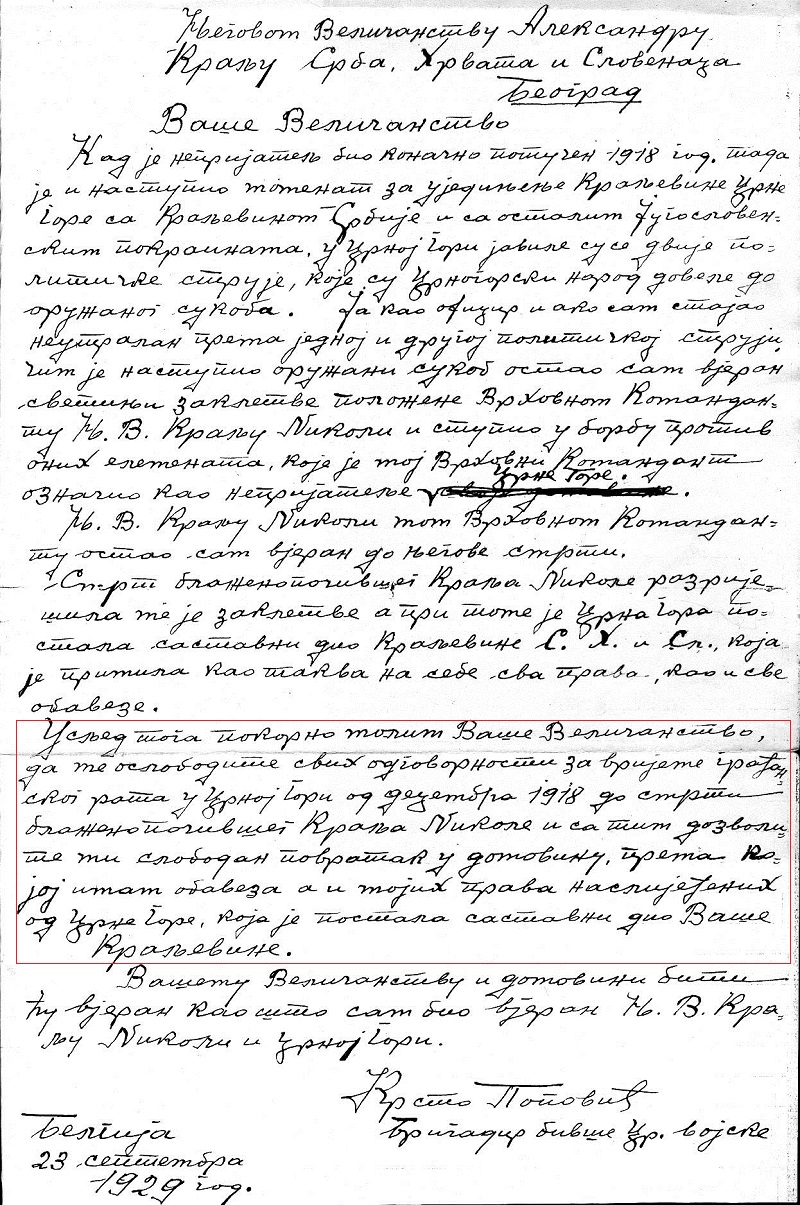 Његовом Величанству Александру
Краљу Срба, Хрвата и Словенаца
Београд
Ваше Величанство
Кад је непријатељ био коначно потучен 1918 год. тада
је и наступио моменат за уједињење Краљевине Црне
Горе са Краљевином Србије и са осталим Југословен-
ским покраинама. у Црној Гори јавиле су се двије по-
литичке струје, које су Црногорски народ довеле до
оружаног сукоба. Ја као официр и ако сам стајао
неутралан према једној и другој политичкој струји,
чим је наступио оружани сукоб остао сам вјеран
светињи заклетве положене Врховном Командан-
ту Њ. В. Краљу Николи и ступио у борбу против
оних елемената, које је мој Врховни Командант
Црне Горе.
означио као непријатеље
Њ. В. Краљу Николи мом Врховном Командан-
ту остао сам вјеран до његове смрти.
Смрт блаженопочившег Краља Николе разрије-
шила ме је заклетве а при томе је Црна Гора по-
стала саставни дио Краљевине С. Х. и Сл., која
је примила као таква на себе сва права, као и све
обавезе.
Усљед тога покорно молим Ваше Величанство,
да ме ослободите свих одговорности за вријеме грађан-
ског рата у Црној Гори од децембра 1918 до смрти
блаженопочившег Краља Николе и са тим дозволи-
те ми слободан повратак у домовину, према ко-
јој имам обавеза а и мојих права наслијеђених
од Црне Горе, која је постала саставни дио Ваше
Краљевине.
Вашему Величанству и домовини бити
ћу вјеран као што сам био вјеран Њ. В. Кра-
љу Николи и Црној Гори.
Крсто Поповић
Бригадир бивше Цр. војске
Белгија
23 септембра
1929 год.